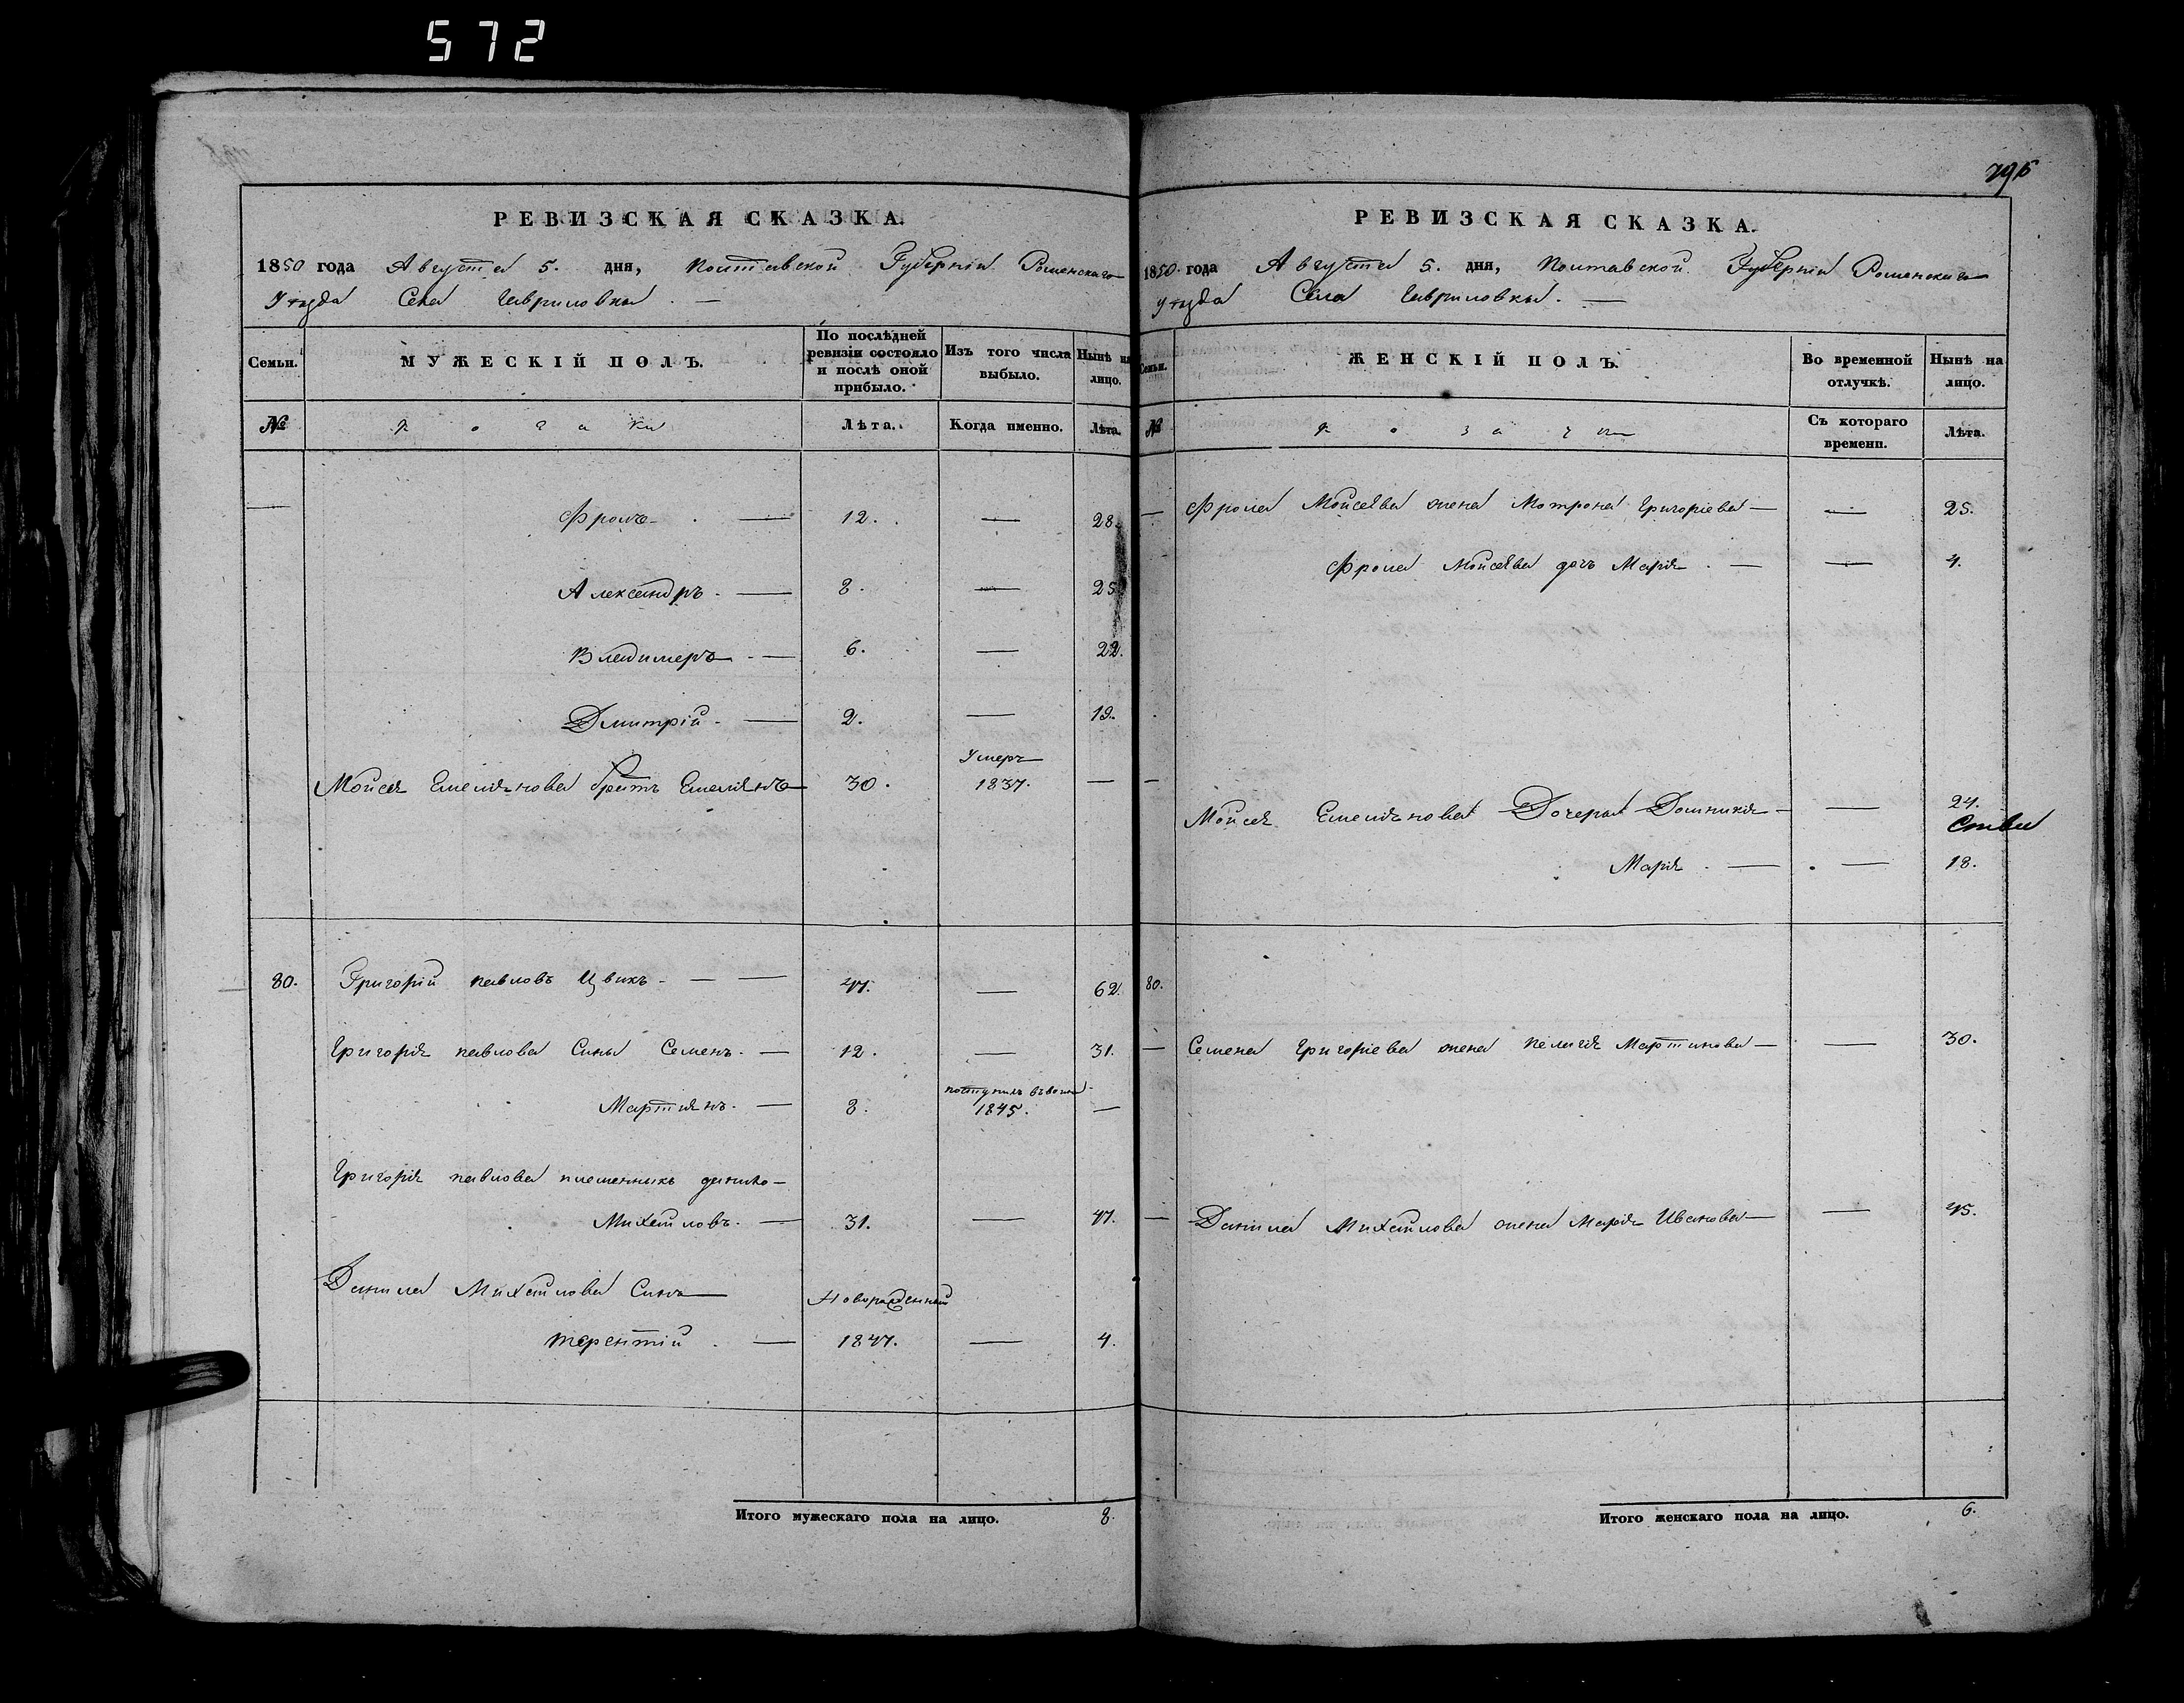 572
795
РЕВИЗСКАЯ СКАЗКА.
1850 года Августа 5. дня, Полтавской Губерніи Роменскаго
Уезда Села Гавриловки. —
Семьи.
МУЖЕСКІЙ ПОЛЪ.
По послѣдней ревизіи состояло и послѣ оной прибыло.
Изъ того числа выбыло.
Нынѣ на лицо.
№
козаки
Лѣта.
Когда именно.
Лѣта.
— Фролъ — 12. — 28.
Александръ — 8. — 25
Владимеръ — 6. — 22.
Дмитрій — 2. — 19.
Умеръ
Мойсея Емеліянова братъ Емеліянъ 30. 1837. —
80. Григорій Павловъ Цвикъ — — 47. — 62.
Григорія Павлова Сины Семенъ — 12. — 31.
поступилъ
Мартинъ — 8. 1845. —
Григорія Павлова племенникъ Данило —
Михайловъ — 31. — 47.
Данила Михайлова Синъ Новорожденный
Терентій — 1847. — 4.
Итого мужескаго пола на лицо. 8.
РЕВИЗСКАЯ СКАЗКА.
1850 года Августа 5. дня, Полтавской Губерніи Роменскаго
уезда Села Гавриловки. —
Семьи.
ЖЕНСКІЙ ПОЛЪ.
Во временной отлучкѣ.
Нынѣ на лицо.
№
козачки
Съ котораго времени.
Лѣта.
— Фрола Мойсеева жена Мотрона Григоріева — — 25.
Фрола Мойсеева дочъ Марія — — 4.
Мойсея Емеліянова Дочери Домникія — — 24.
Марія — — 18.
80.
— Семена Григоріева жена Пелагія Мартинова — — 30.
— Данила Михайлова жена Марія Иванова — — 45.
Итого женскаго пола на лицо. 6.